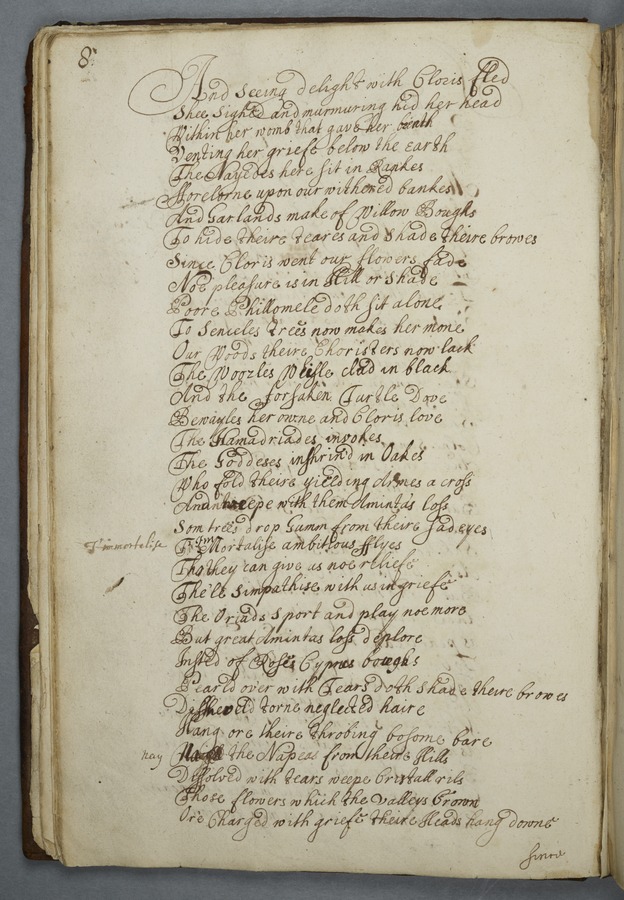 8
And seeing delight with Cloris fled
Shee sighed and murmuring hid her head
Within her womb that gave her breath
Venting her griefe below the Earth
The Nayides here sit in Rankes
fforelorne upon our withered bankes
And Garlands make of Willow Boughs
To hide theire teares and shade theire browes
Since Cloris went our flowers fade
Noe pleasure is in Hill or Shade
Poore Phillomele doth sit alone
To senceles trees now makes her mone
Our Woods theire Choristers now lack
The Woozles Whisle clad in black
And the forsaken Turtle Dove
Bewayles her owne and Cloris love
The Hamadriades invokes
The Goddeses inshrind in Oakes
Who fold theire yielding Armes a cross
And weepe with them Amintas loss
Som trees drop Gumm from theire sad eyes
T'immortalise
T' Im Mortalise ambitious fflyes
Tho they can give us noe reliefe
The'le Simpathise with us in griefe
The Oriads sport and play noe more
But great Amintas loss deplore
Insted of Rose Cyprus boughs
Pearld over with Tears doth shade theire browes
Disheveld torne neglected haire
Hang ore theire throbing bosome bare
nay
the Napeas from theire Hills
Dissolved with tears weepe Cristall rils
Those flowers which the valleys Crown
Ore Charged with griefe theire Heads hang downe
since